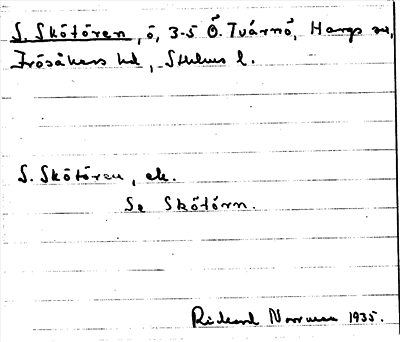 S. Skötören, ö, 3-5 Ö. Tvärnö, Hargs sn,
Frösåkers hd, Sthlms l.
S. Skötören, ek.
Se Skötörn.
Rickard Norrman 1935.